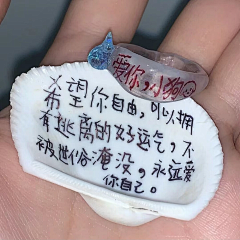 爱你，小狗
希望你自由，可以拥
有挑离的好运气，不
被世俗淹没，永远爱
你自己。